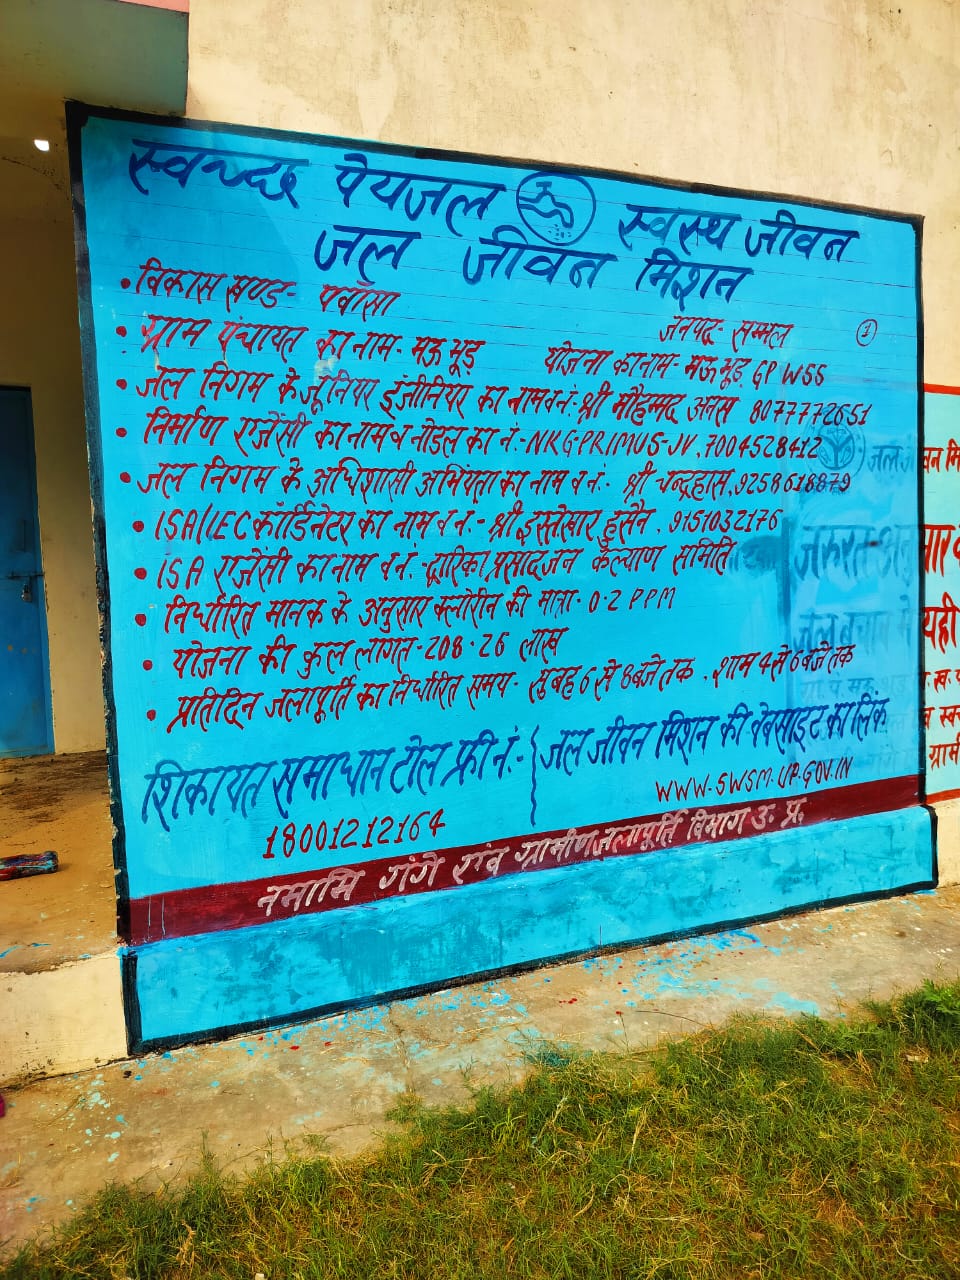 स्वच्छ पेयजल स्वस्थ जीवन
जल जीवन मिशन
•विकास खण्ड- पवाँसा
जनपद- सम्भल ①
• ग्राम पंचायत का नाम- मऊ भूड़ योजना का नाम- मऊ भूड़ GP WSS
• जल निगम के जूनियर इंजीनियर का नाम व नं:- श्री मौहम्मद अनस 8077772651
• निर्माण एजेंसी का नाम व नोडल का नं:-NKG-PRIMUS-JV,7004528412
• जल निगम के अधिशासी अभियंता का नाम व नं:- श्री चन्द्रहास,9258618879
• ISA/IEC कॉर्डिनेटर का नाम व नं.- श्री इस्तेखार हुसैन, 9151032176
• ISA एजेंसी का नाम व नं.-द्वारिका प्रसाद जन कल्याण समिति
• निर्धारित मानक के अनुसार क्लोरीन की मात्रा- 0.2 PPM
• योजना की कुल लागत-208.26 लाख
• प्रतिदिन जलापूर्ति का निर्धारित समय- सुबह 6 से 8 बजे तक, शाम 4 से 6 बजे तक
शिकायत समाधान टोल फ्री नं:-
18001212164
जल जीवन मिशन की वेबसाइट का लिंक
WWW.SWSM.UP.GOV.IN
नमामि गंगे एंव ग्रामीण जलापूर्ति विभाग उ. प्र.